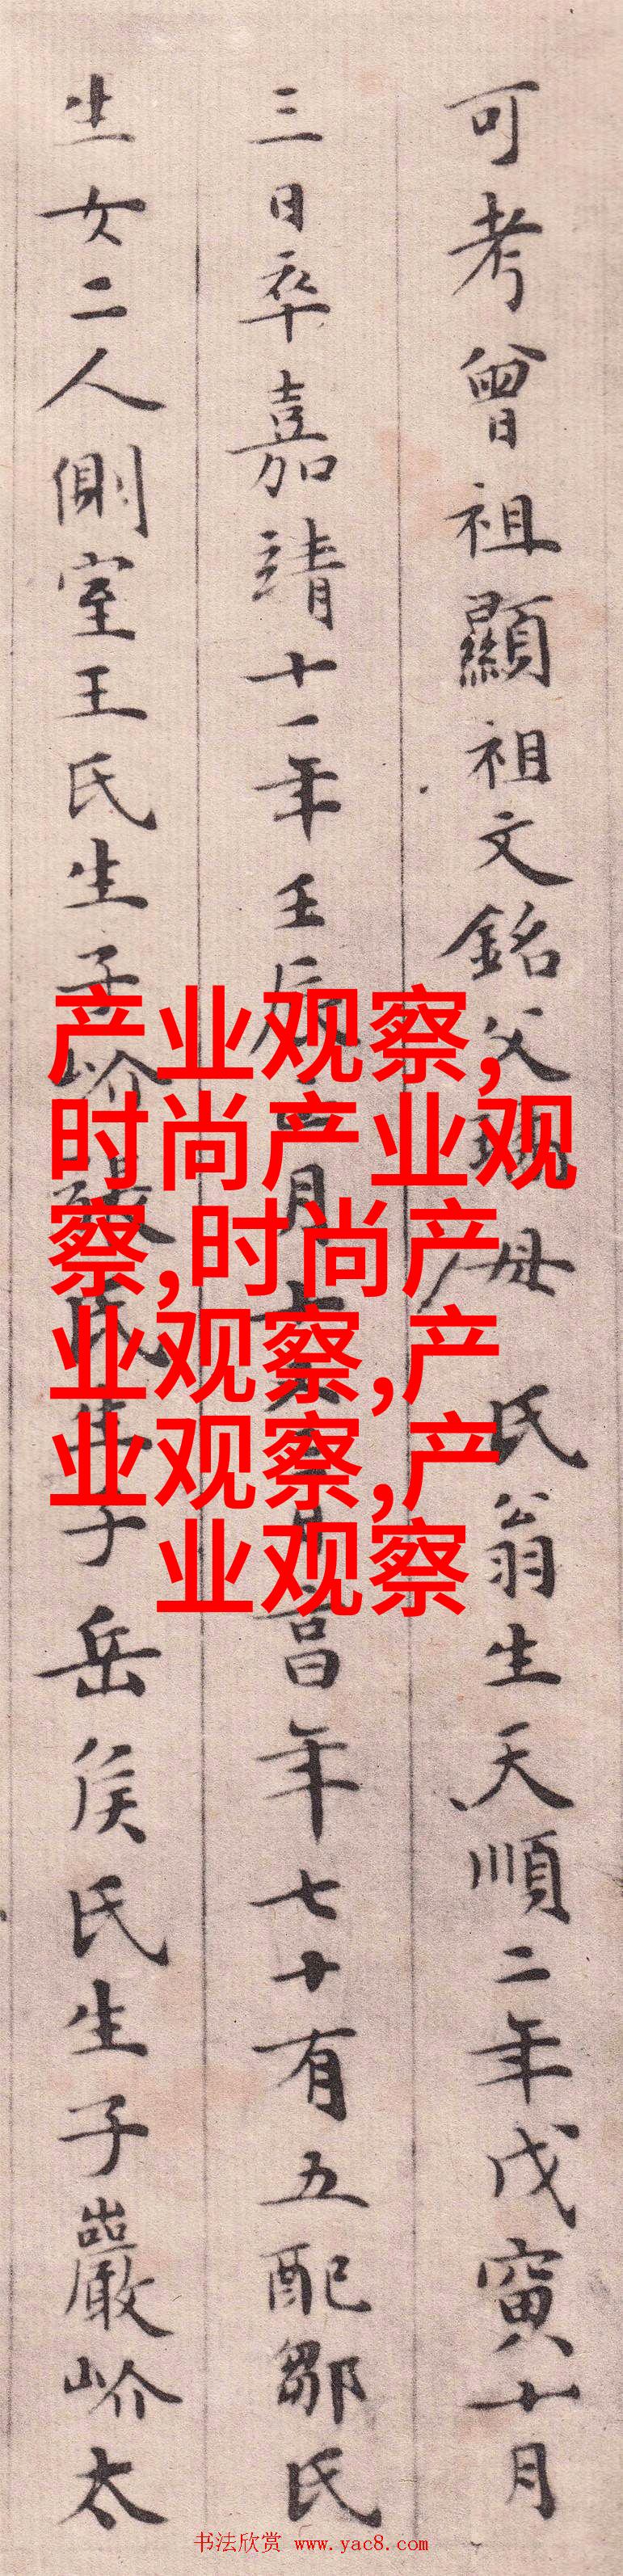 可考曾祖顯祖文銘父母 氏翁生天順二年戊寅十月
三日卒嘉靖十一年壬辰月年七十有五配鄒氏
生女二人側室王氏生子岕氏生子岳侯氏生子巖岕太
产业观察,
时尚产业观
察,时尚产
业观察,产
业观察,产
业观察
书法欣赏 www.yac8.com